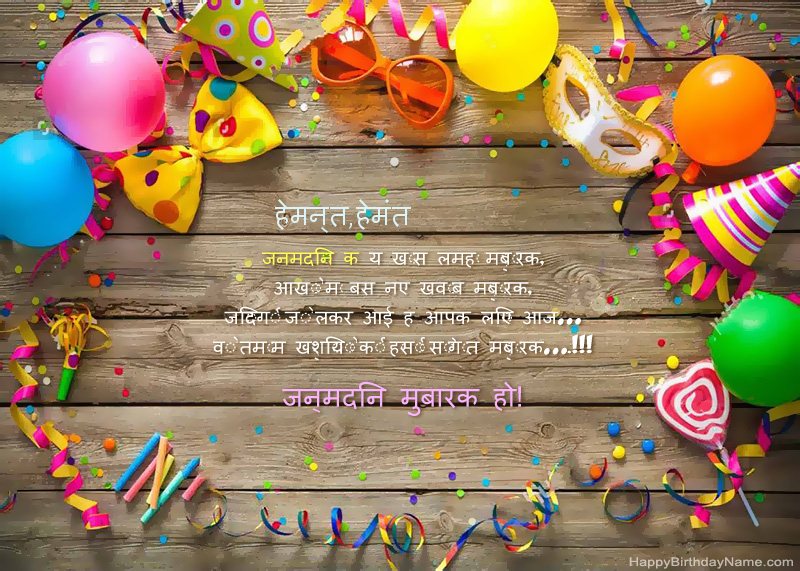 हेमन्त,हेमंत
जनमदिन क य खास लमहा मबारक,
आखों में बस नए खवाब मबारक,
जदिगी जो लेकर आई ह आपक लिए आज...
वो तमाम खशियों की हसीं सौगात मबारक...!!!
जन्मदिन मुबारक हो!
HappyBirthdayName.com